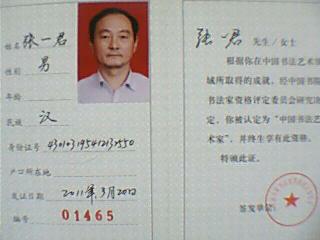 姓名 张一君
性别 男
年龄
民族 汉
身份证号
户口所在地
发证日期 2011年3月20日
编号 01465
张一君 先生/女士
根据你在中国书法艺术领
域所取得的成就,经中国
书法家资格评定委员会研究
定,你被认定为“中国书法艺术
家”,并终生享有此资格。
特颁此证。
签发单位: